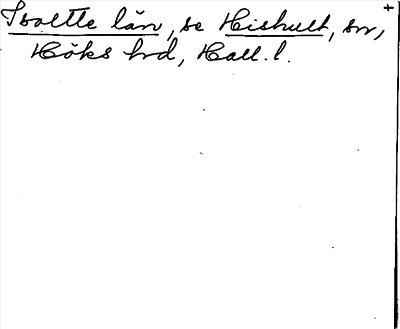 Isoette län, se Hishult, sn, +
Höks hrd, Hall. l.